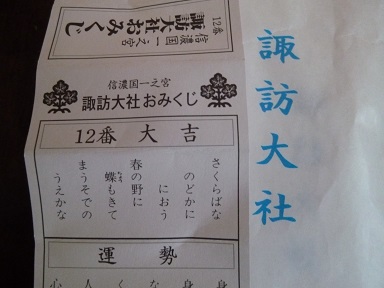 12番
信濃国一之宮
諏訪大社おみくじ
諏訪大社
信濃国一之宮
諏訪大社おみくじ
12番 大吉
さくらばな
のどかに
におう
春の野に
蝶もきて
まうそでの
うえかな
運勢